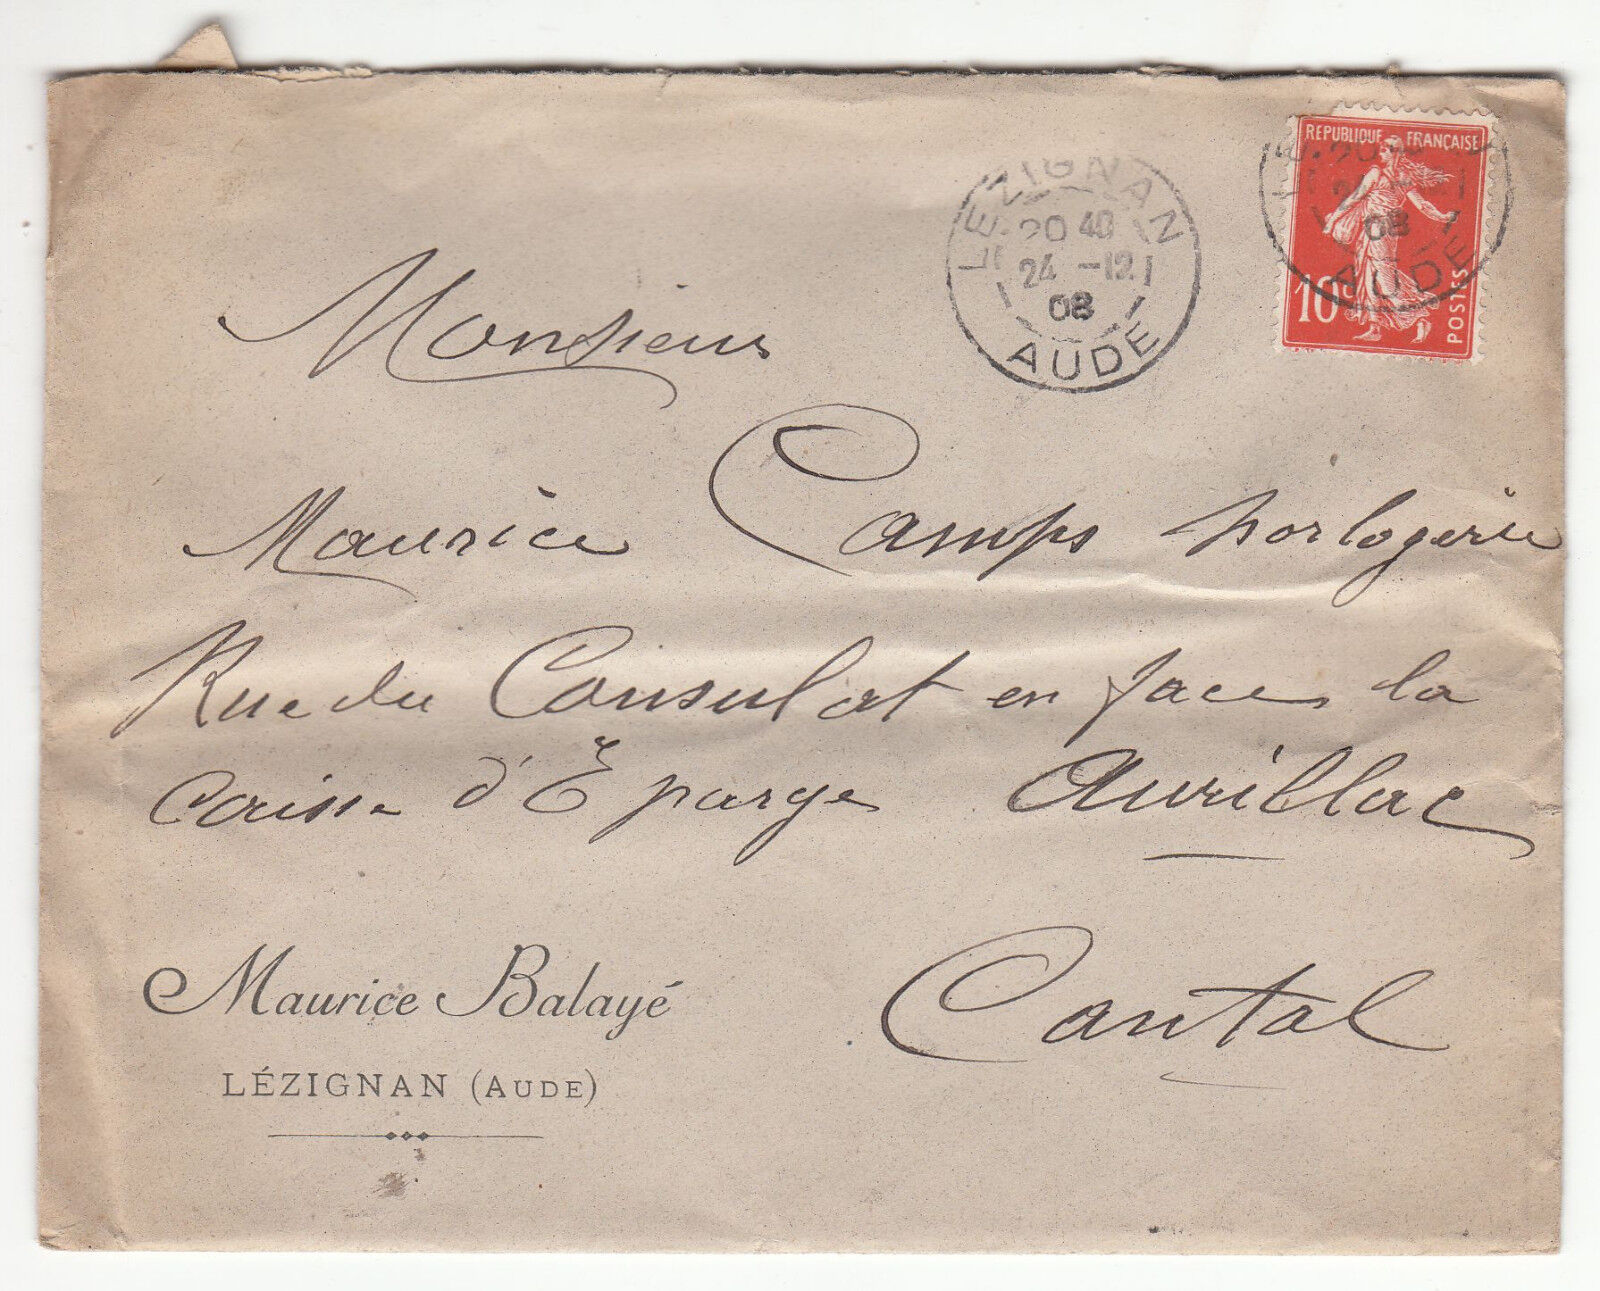 RÉPUBLIQUE FRANÇAISE
10c
POSTES
LEZIGNAN
20 40
24 -12
08
AUDE
24
08
AUDE
Monsieur
Maurice Camps horlogerie
Rue du Consulat en face la
Caisse d'Eparge Aurillac
Cantal
Maurice Balayé
LÉZIGNAN (AUDE)